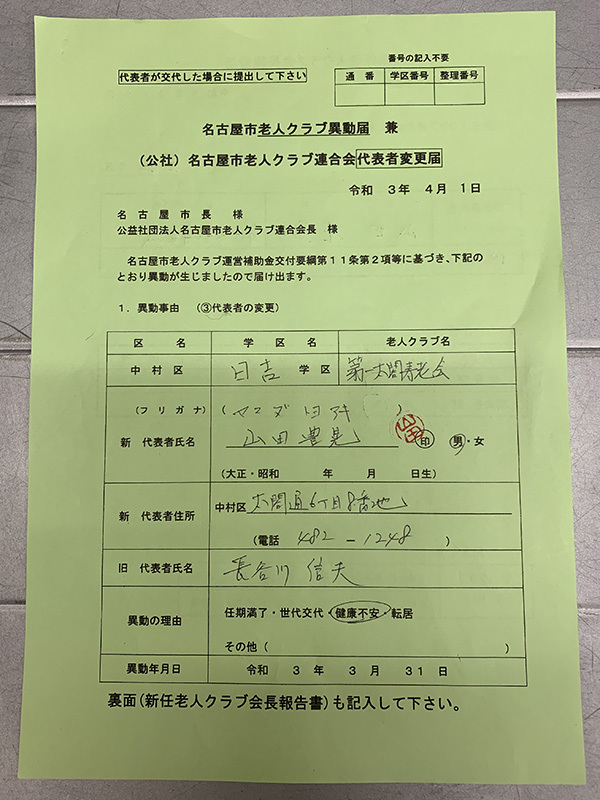 番号の記入不要
代表者が交代した場合に提出して下さい
通 番 学区番号 整理番号
名古屋市老人クラブ異動届 兼
(公社)名古屋市老人クラブ連合会代表者変更届
令和 3年 4月 1日
名古屋市長 様
公益社団法人名古屋市老人クラブ連合会長 様
名古屋市老人クラブ運営補助金交付要綱第11条第2項等に基づき、下記の
とおり異動が生じましたので届け出ます。
1.異動事由 (③代表者の変更)
区 名 学 区 名 老人クラブ名
中村区 日吉 学区 第一太閤寿老会
(フリガナ) ( )
新 代表者氏名 山田 豊晃 印 男・女
(大正・昭和 年 月 日生)
新 代表者住所 中村区 太閤通6丁目8番地
(電話 482-1248 )
旧 代表者氏名 長谷川 信夫
異動の理由 任期満了・世代交代・健康不安・転居
その他( )
異動年月日 令和 3 年 3 月 31 日
裏面(新任老人クラブ会長報告書)も記入して下さい。